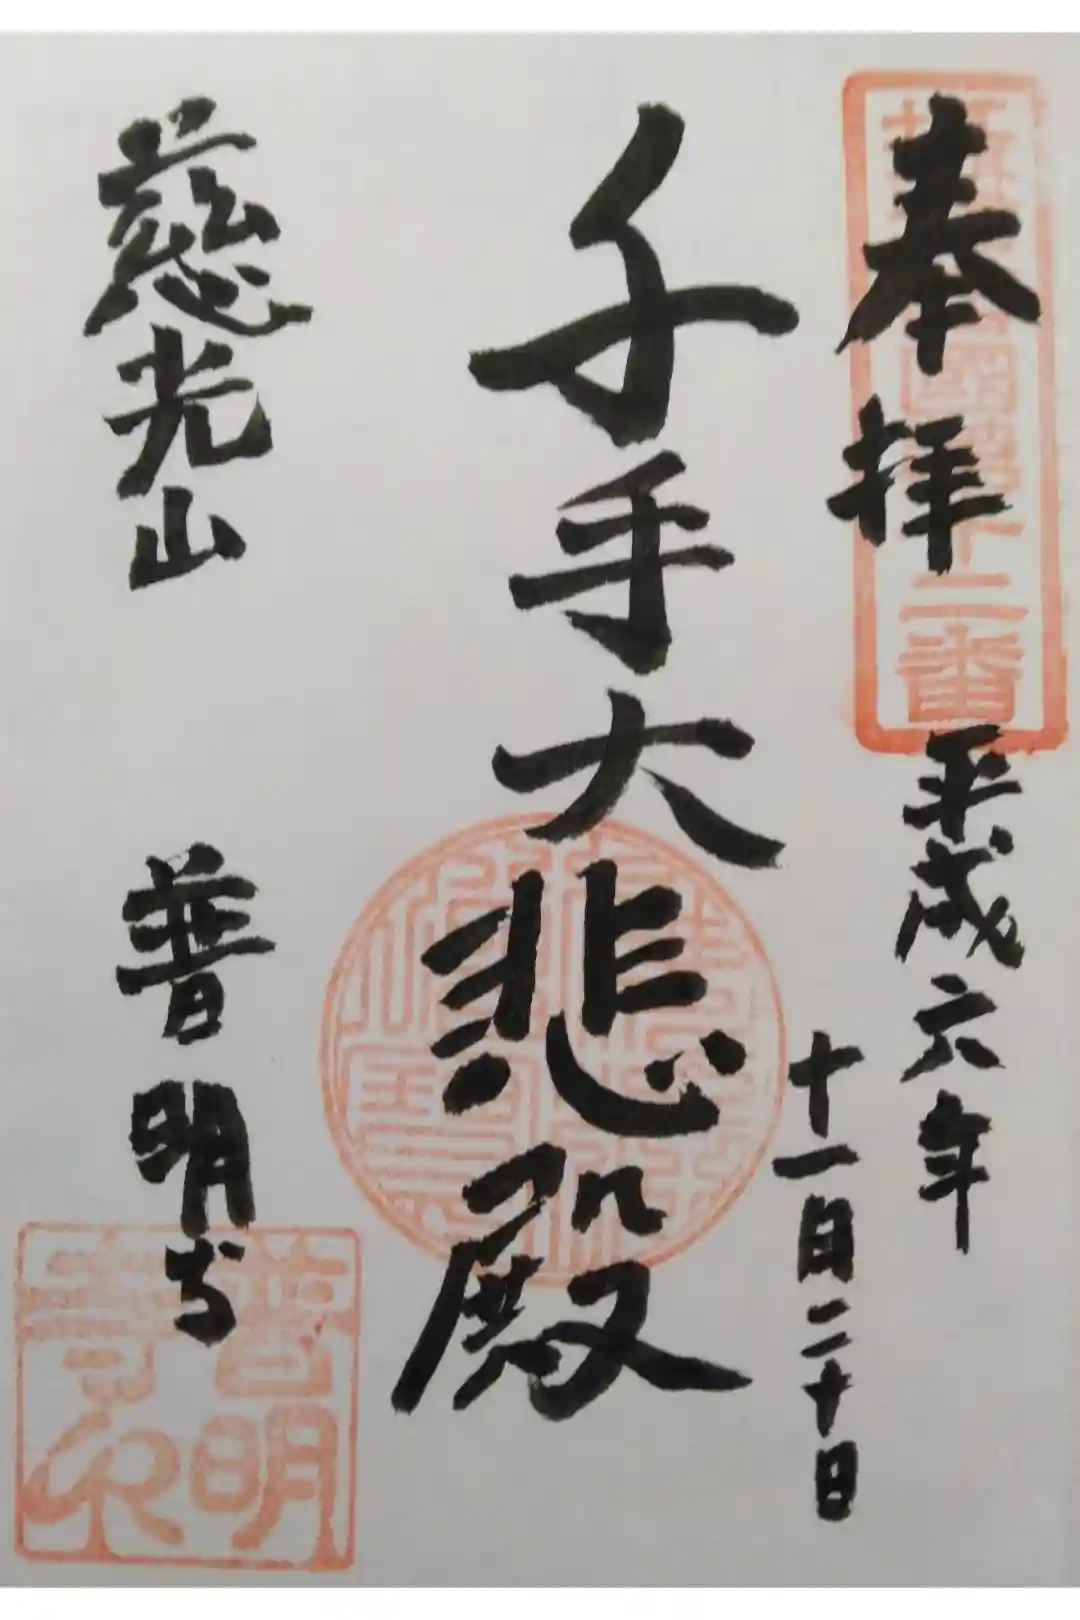 奉拝
平成六年
十一月二十日
千手大悲殿
慈光山
普明寺
普明
寺印